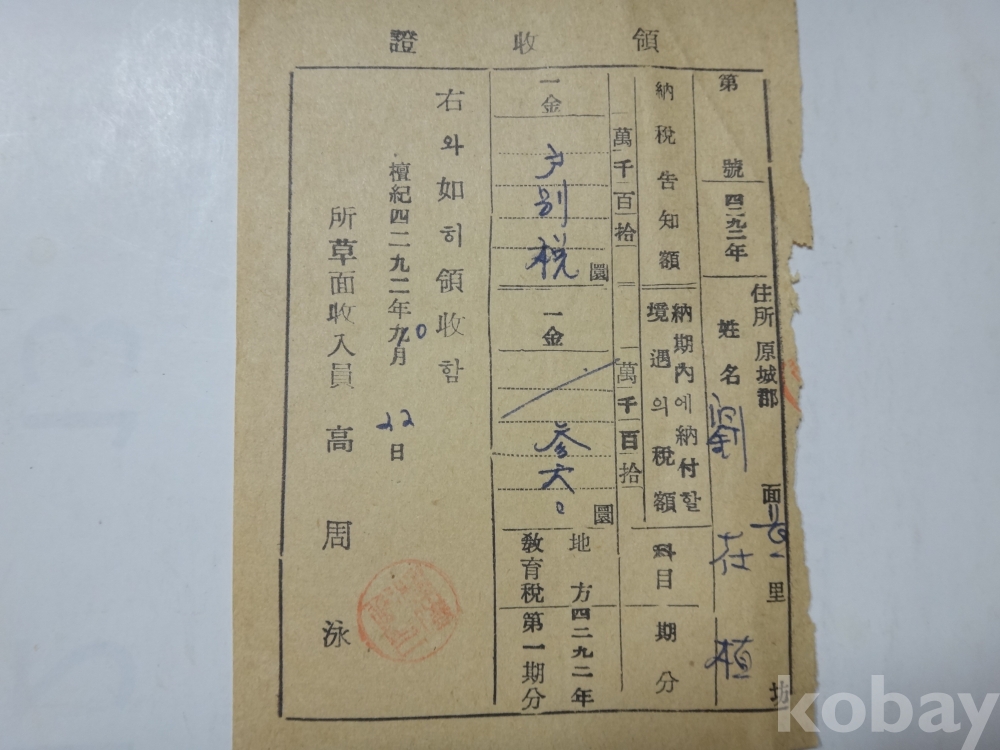 領收證
住所 原城郡 面 里
第 號 四二九二年 姓名 劉在植
納稅告知額
納期內에納付할境遇의稅額
科目
期分
萬千百十
萬千百十
一金 戶別稅 圜
一金 參六0 圜
地方教育稅
四二九二年第一期分
右와如히領收함
檀紀四二九二年九10月22日
所草面收入員 高周泳
kobay